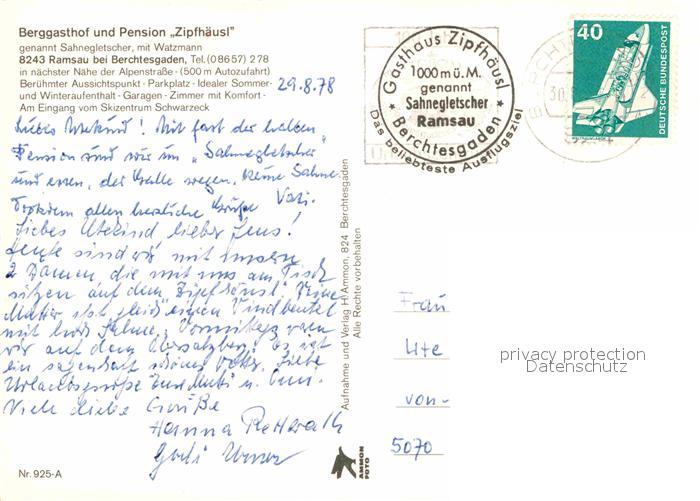 Berggasthof und Pension „Zipfhäusl"
genannt Sahnegletscher, mit Watzmann
8243 Ramsau bei Berchtesgaden, Tel. (0 86 57) 278
in nächster Nähe der Alpenstraße - (500 m Autozufahrt)
Berühmter Aussichtspunkt - Parkplatz - Idealer Sommer-
und Winteraufenthalt - Garagen - Zimmer mit Komfort -
Am Eingang vom Skizentrum Schwarzeck
29.8.78
Liebes Utekind! Mit fast der halben
Pension sind wir im „Sahnegletscher"
und essen, der Galle wegen, keine Sahne.
Trotzdem allen herzliche Grüße Vati.
Liebes Utekind lieber Jens!
Heute sind wir mit unseren
2 Damen die mit uns am Tisch
sitzen auf dem Zipfhäusl.
Mutter ißt grad einen Windbeutel
mit Sahne. Vormittags waren
wir auf dem Obersalzberg. Es ist
ein sagenhaft schönes Wetter. Liebe
Urlaubsgrüße Eure Mutti u. Omi.
Viele liebe Grüße
Hanna
Gasthaus Zipfhäusl
1000 m ü. M.
genannt
Sahnegletscher
Ramsau
Berchtesgaden
Das beliebteste Ausflugsziel
40
DEUTSCHE BUNDESPOST
Aufnahme und Verlag H. Ammon, 824 Berchtesgaden
Alle Rechte vorbehalten
Frau
Ute
von-
5070
privacy protection
Datenschutz
AMMON
FOTO
Nr. 925-A